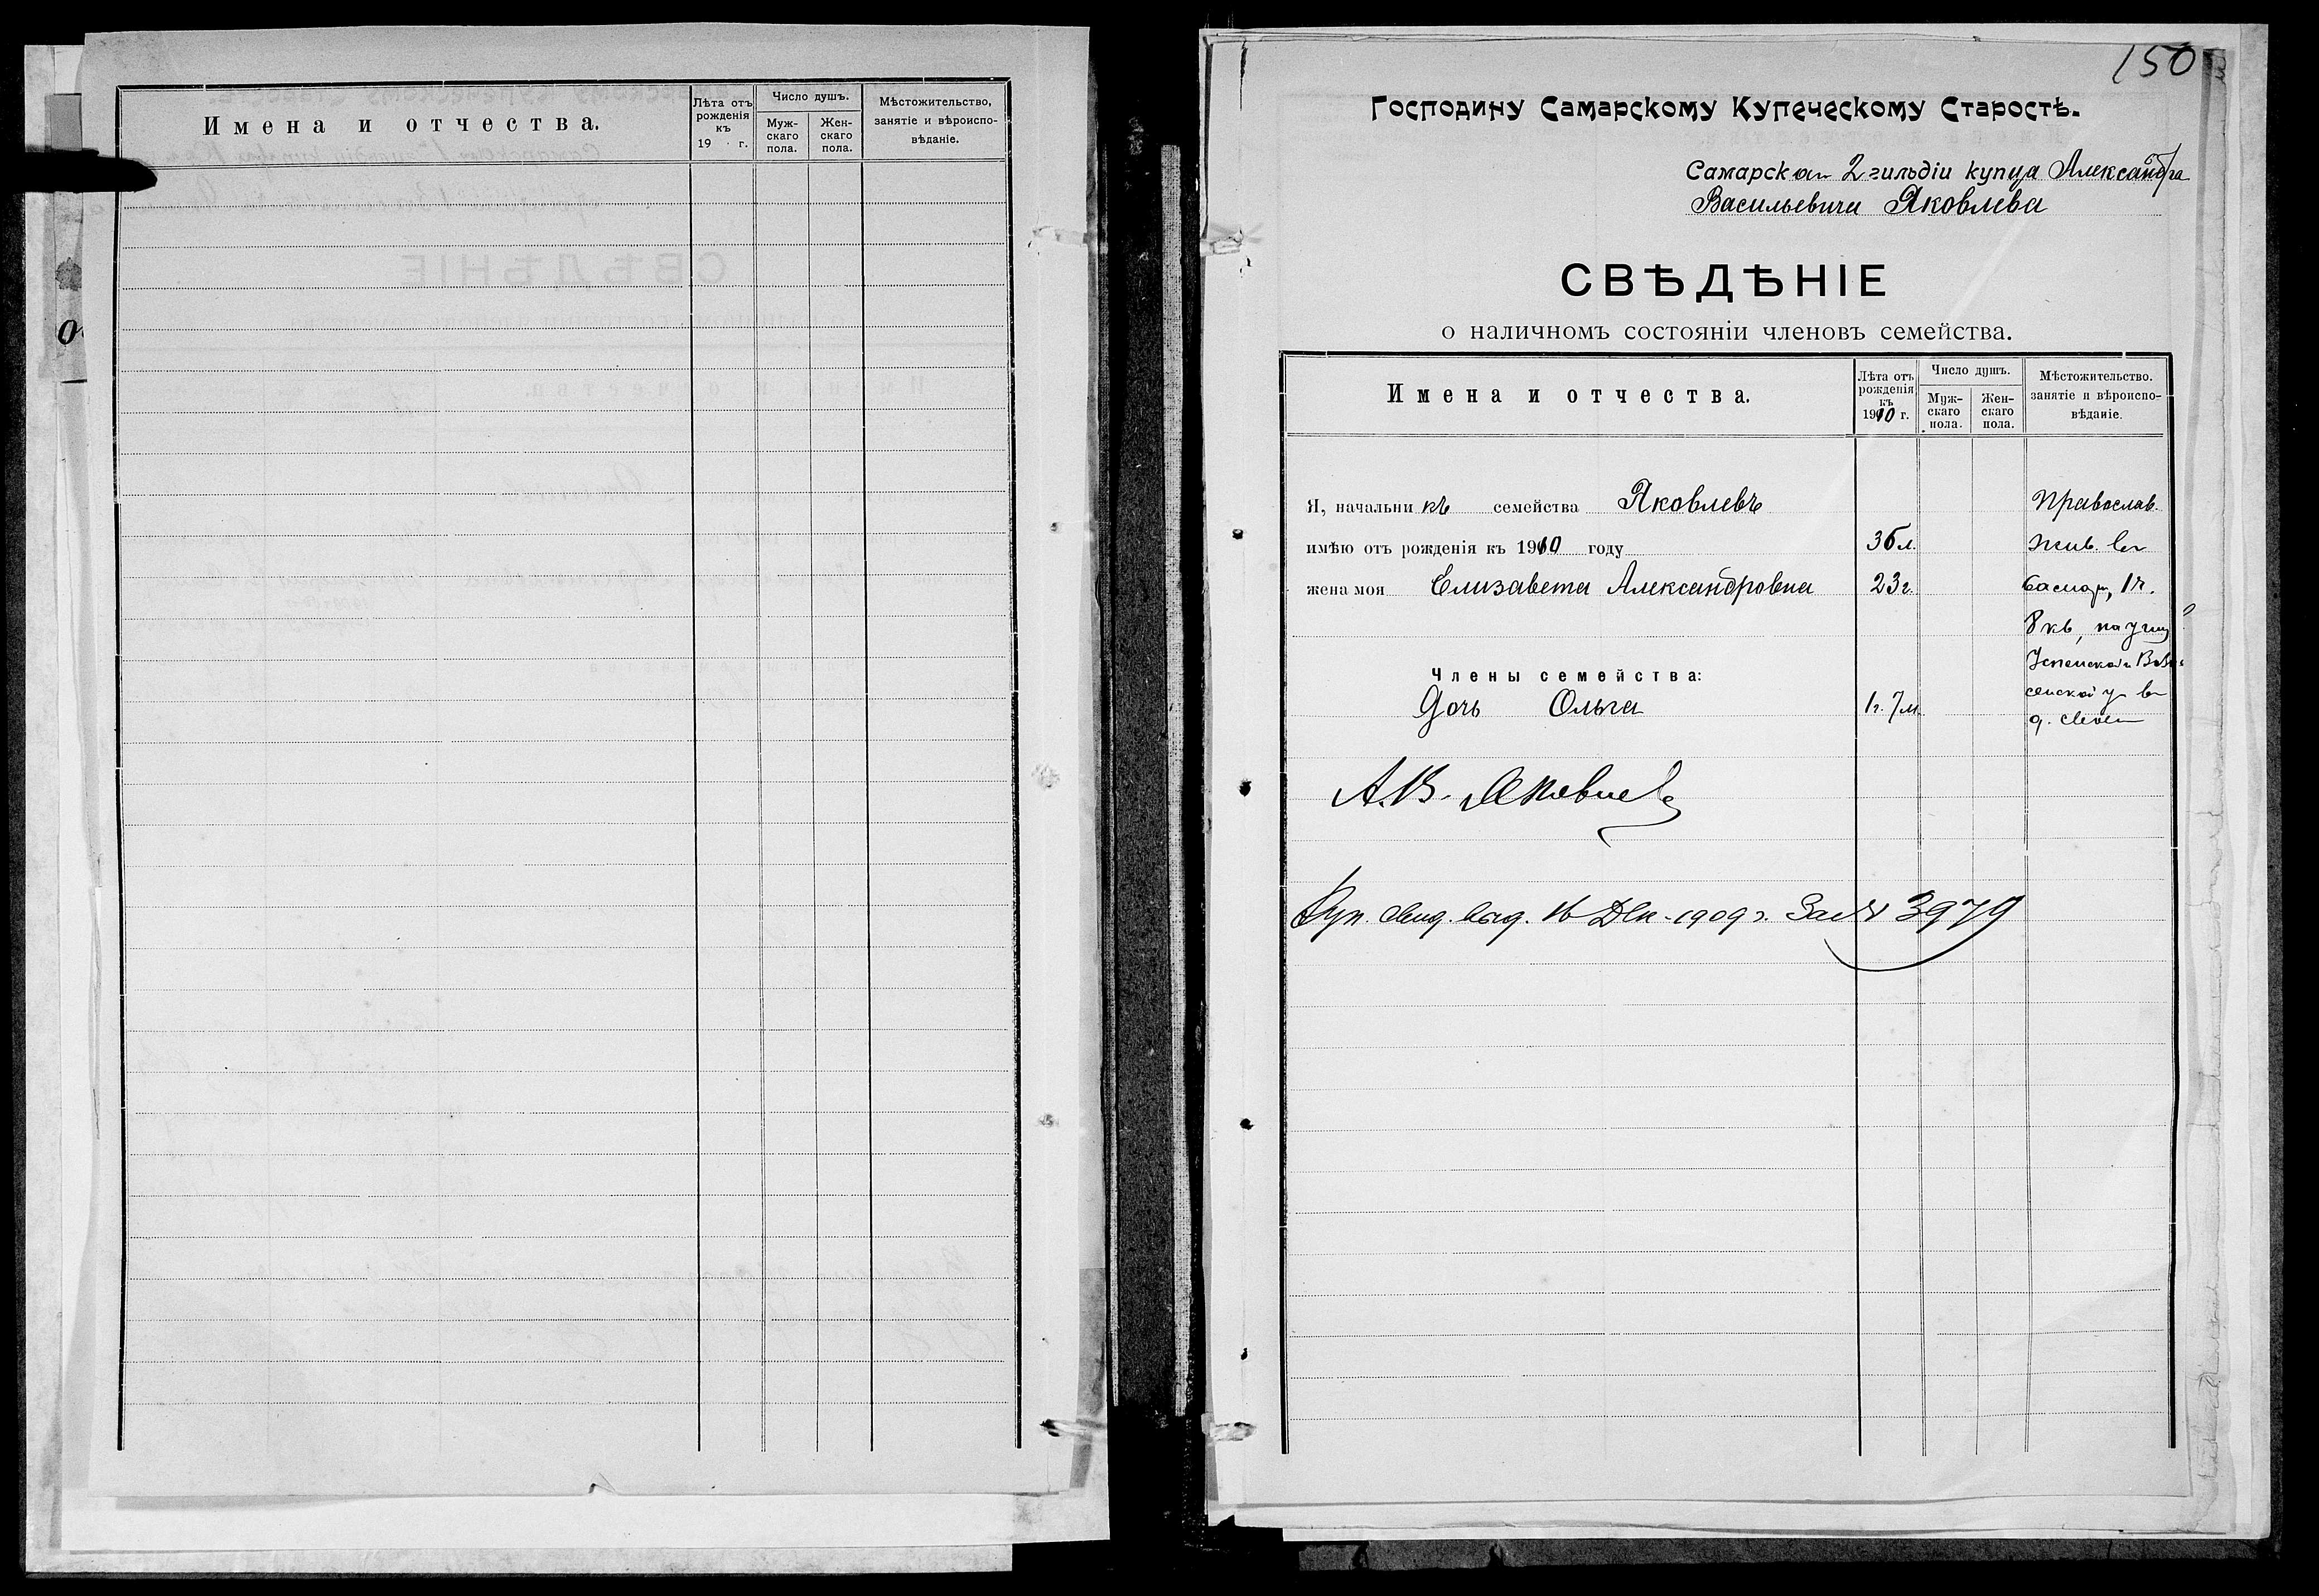 Имена и отчества.
Лѣта отъ рожденія къ 19 г.
Число душъ.
Муж-скаго пола.
Жен-скаго пола.
Мѣстожительство, занятіе и вѣроиспо-вѣданіе.
150
Господину Самарскому Купеческому Старостѣ.
Самарскаго 2 гильдіи купца Александра
Васильевича Яковлева
СВѢДѢНІЕ
о наличномъ состояніи членовъ семейства.
Имена и отчества.
Лѣта отъ рожденія къ 1910 г.
Число душъ.
Муж-скаго пола.
Жен-скаго пола.
Мѣстожительство, занятіе и вѣроиспо-вѣданіе.
Я, начальникъ семейства Яковлевъ Православ.
имѣю отъ рожденія къ 1910 году 36 л. жив. въ
жена моя Елизавета Александровна 23 г. Самар, 1 ч.
8 кв, на углу
Члены семейства:
Дочь Ольга 1 г. 7 м.
сенской у въ
А. В. Яковлевъ
Куп. свид. выд. 16 Дек. 1909 г. За № 3979